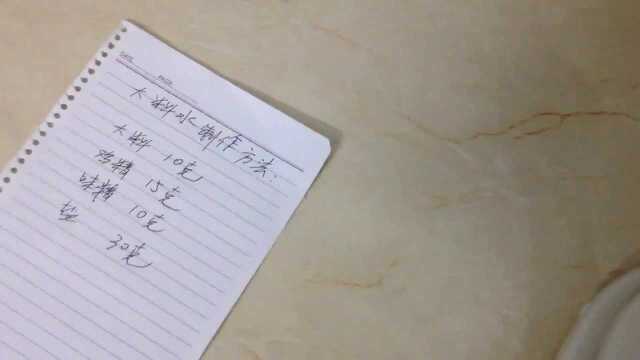 DATE
大料水制作方法:
大料 10克
鸡精 15克
味精 10克
盐 30克